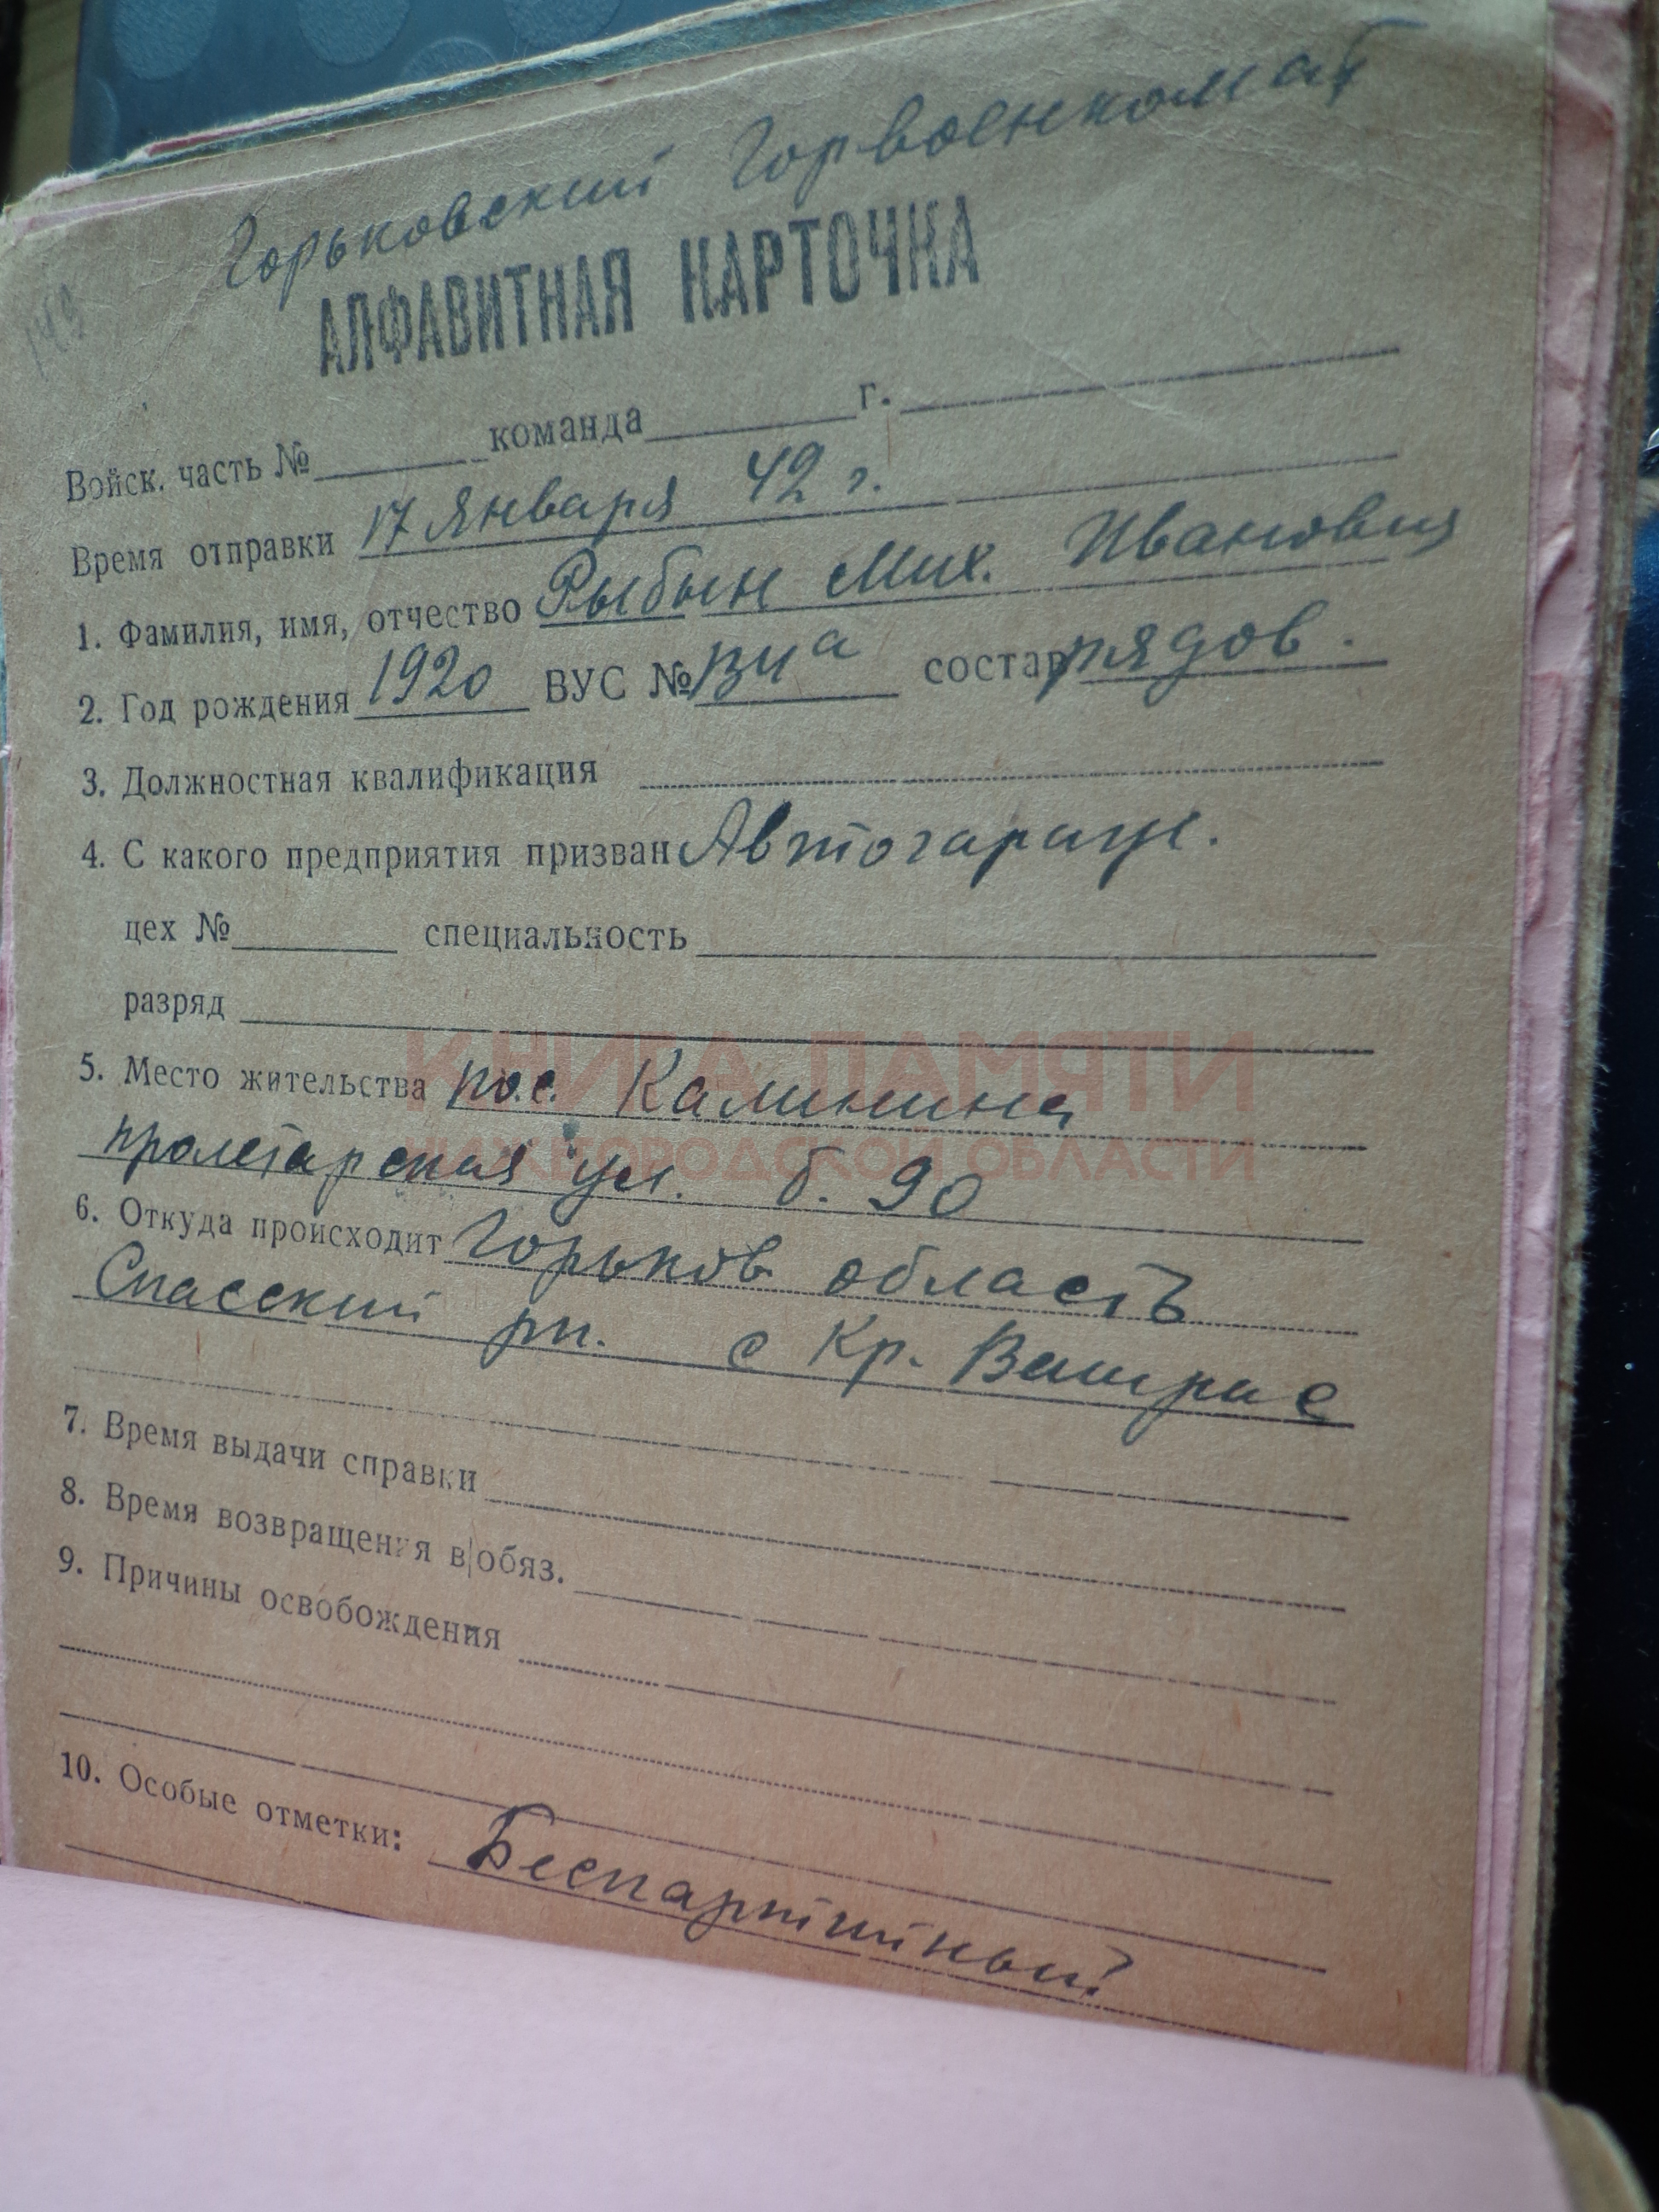 Горьковский Горвоенкомат
АЛФАВИТНАЯ КАРТОЧКА
149
Войск. часть № команда г.
Время отправки 17 Января 42 г.
1. Фамилия, имя, отчество Рыбын Мих. Иванович
2. Год рождения 1920 ВУС № состав рядов.
3. Должностная квалификация
4. С какого предприятия призван Автогараж.
цех № специальность
разряд
КНИГА ПАМЯТИ
5. Место жительства пос. Калинина
НИЖЕГОРОДСКОЙ ОБЛАСТИ
пролетарская ул. б. 90
6. Откуда происходит Горьков область
Спасский рн. с Кр. Ватрас
7. Время выдачи справки
8. Время возвращения в обяз.
9. Причины освобождения
10. Особые отметки: Беспартийный